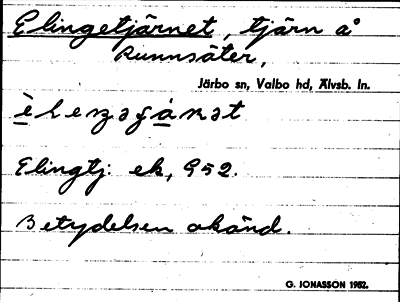 Elingetjärnet, tjärn å
Runnsäter,
Järbo sn, Valbo hd, Älvsb. ln.
Elingtj: ek, G52.
Betydelsen okänd.
G. JONASSON 1952.